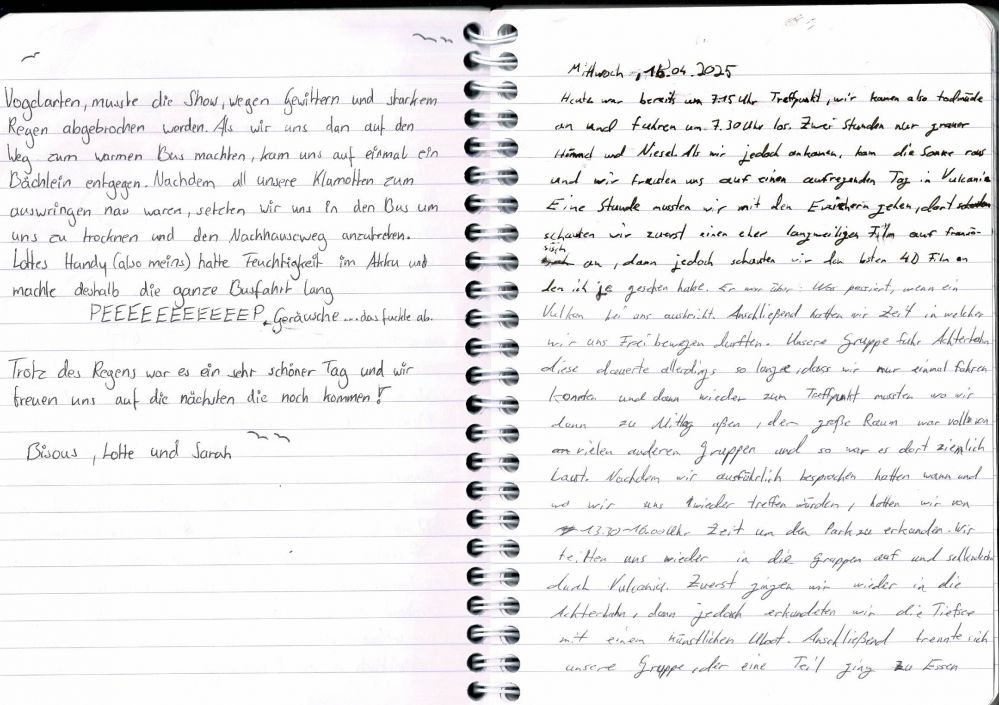 Vogelarten, musste die Show, wegen Gewittern und starkem
Regen abgebrochen werden. Als wir uns dan auf den
Weg zum warmen Bus machten, kam uns auf einmal ein
Bächlein entgegen. Nachdem all unsere Klamotten zum
auswringen nass waren, setzten wir uns in den Bus um
uns zu trocknen und den Nachhauseweg anzutreten.
Lottes Handy (also meins) hatte Feuchtigkeit im Akku und
machte deshalb die ganze Busfahrt lang
PEEEEEEEEEEEP Geräusche ... das fuckte ab.
Trotz des Regens war es ein sehr schöner Tag und wir
freuen uns auf die nächsten die noch kommen!
Bisous, Lotte und Sarah
Mittwoch, 16.04.2025
Heute war bereits um 7.15 Uhr Treffpunkt, wir kamen also todmüde
an und fuhren um 7.30 Uhr los. Zwei Stunden nur grauer
Himmel und Niesel. Als wir jedoch ankamen, kam die Sonne raus
und wir freuten uns auf einen aufregenden Tag in Vulcania
Eine Stunde mussten wir mit den Erziehern gehen, dort
schauten wir zuerst einen eher langweiligen Film auf franzö-
sisch an, dann jedoch schauten wir den besten 4D Film an
den ich je gesehen habe. Er war über: Was passiert, wenn ein
Vulkan bei uns ausbricht. Anschließend hatten wir Zeit in welcher
wir uns Frei bewegen durften. Unsere Gruppe fuhr Achterbahn
diese dauerte allerdings so lange, dass wir nur einmal fahren
konnten und dann wieder zum Treffpunkt mussten wo wir
dann zu Mittag aßen, der große Raum war voll von
vielen anderen Gruppen und so war es dort ziemlich
Laut. Nachdem wir ausführlich besprochen hatten wann und
wo wir uns wieder treffen würden, hatten wir von
13.30-16.00 Uhr Zeit um den Park zu erkunden. Wir
teilten uns wieder in die Gruppen auf und
durch Vulcania. Zuerst gingen wir wieder in die
Achterbahn, dann jedoch erkundeten wir die Tiefsee
mit einem künstlichen Uboot. Anschließend trennte sich
unsere Gruppe, der eine Teil ging zu Essen